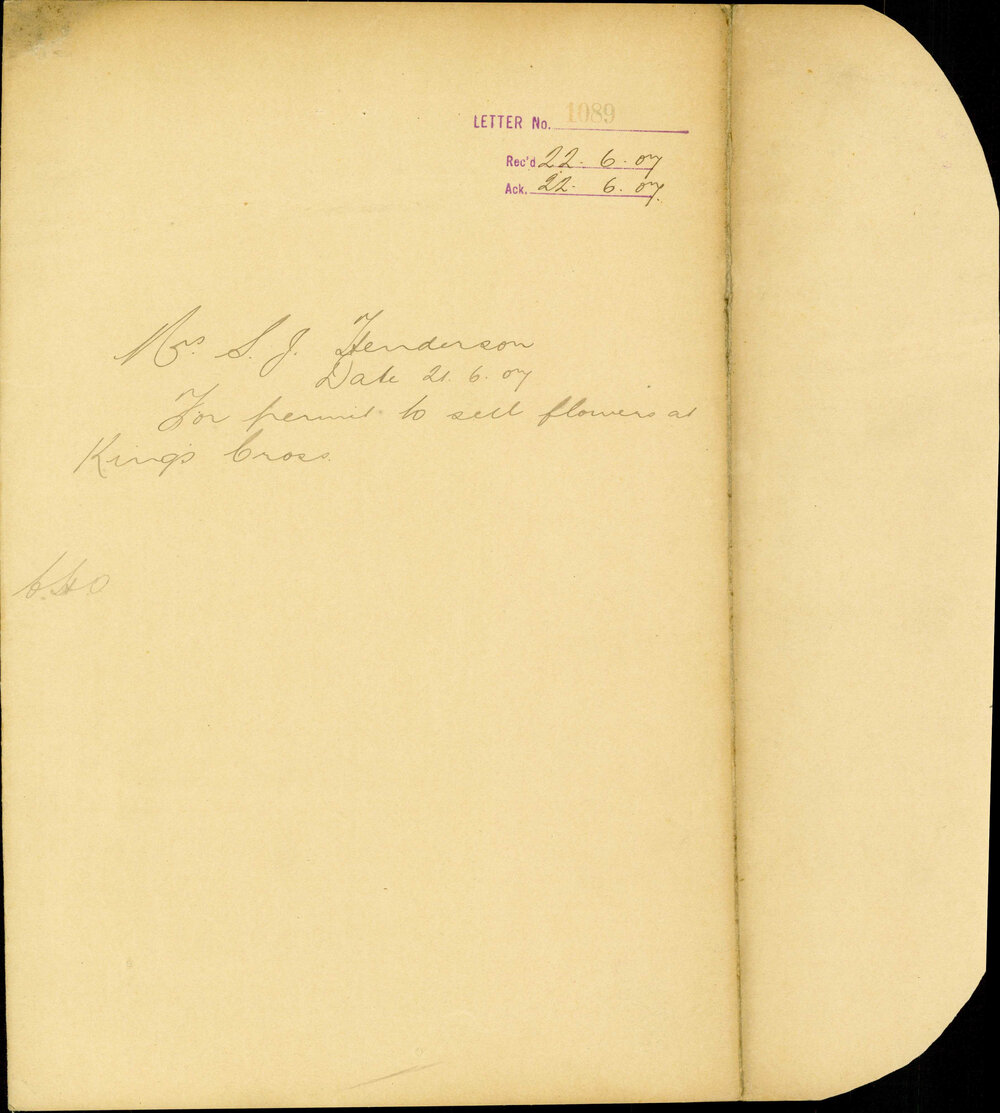 LETTER No. 1089
Rec'd 22. 6. 07
Ack. 22. 6. 07.
Mrs. S. J. Henderson
Date 21. 6. 07
For permit to sell flowers at
King's Cross.